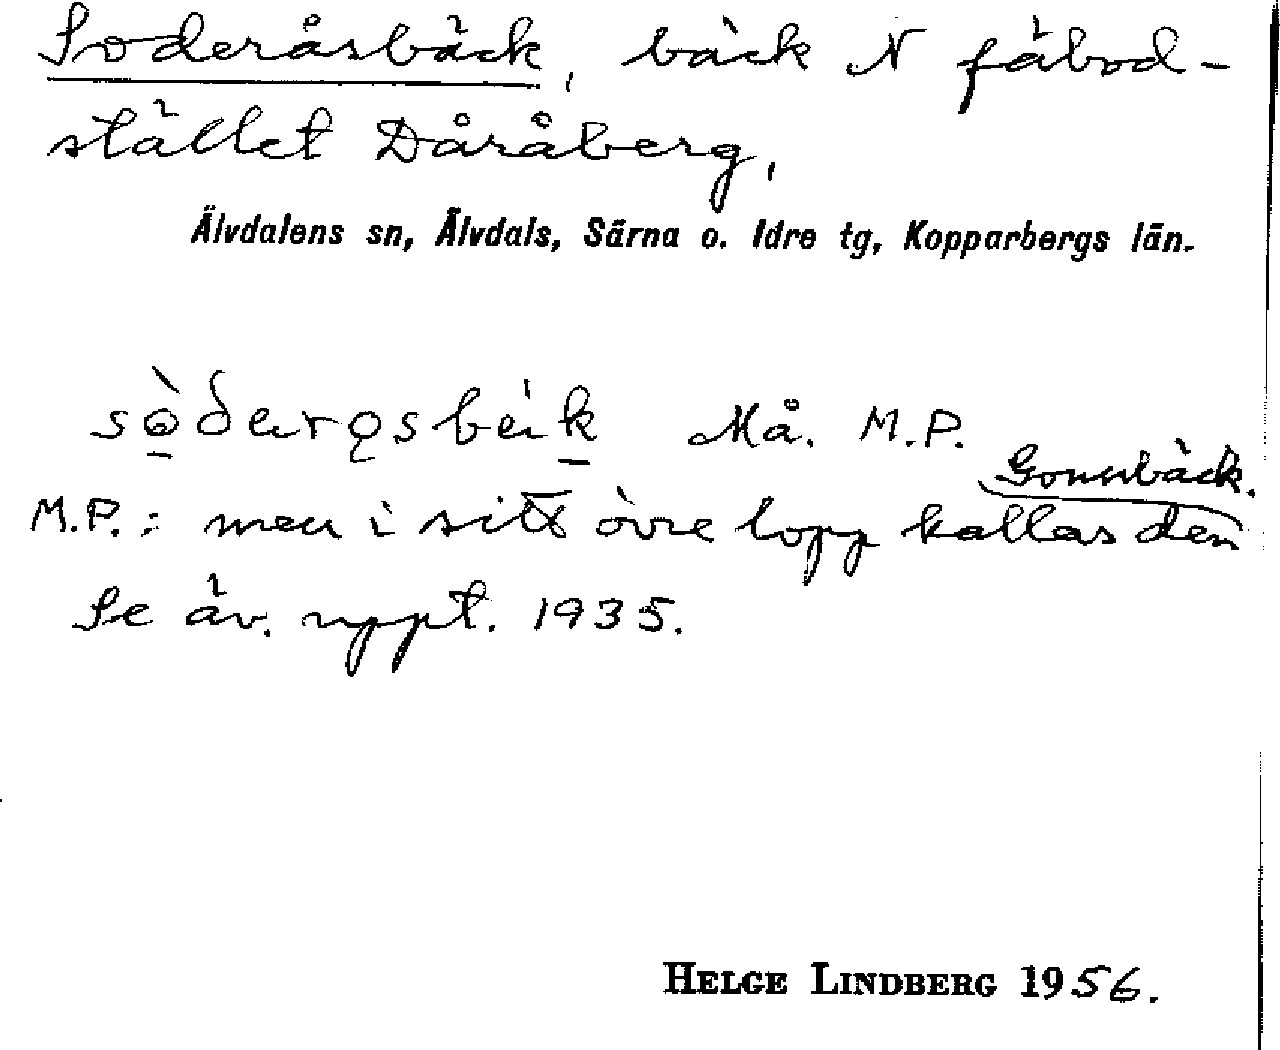 Soderåsbäck, bäck N fäbod-
stället Dåråberg,
Älvdalens sn, Älvdals, Särna o. Idre tg, Kopparbergs län.
Må. M.P.
M.P.: men i sitt övre lopp kallas den
Gonusbäck.
Se äv. uppt. 1935.
HELGE LINDBERG 1956.